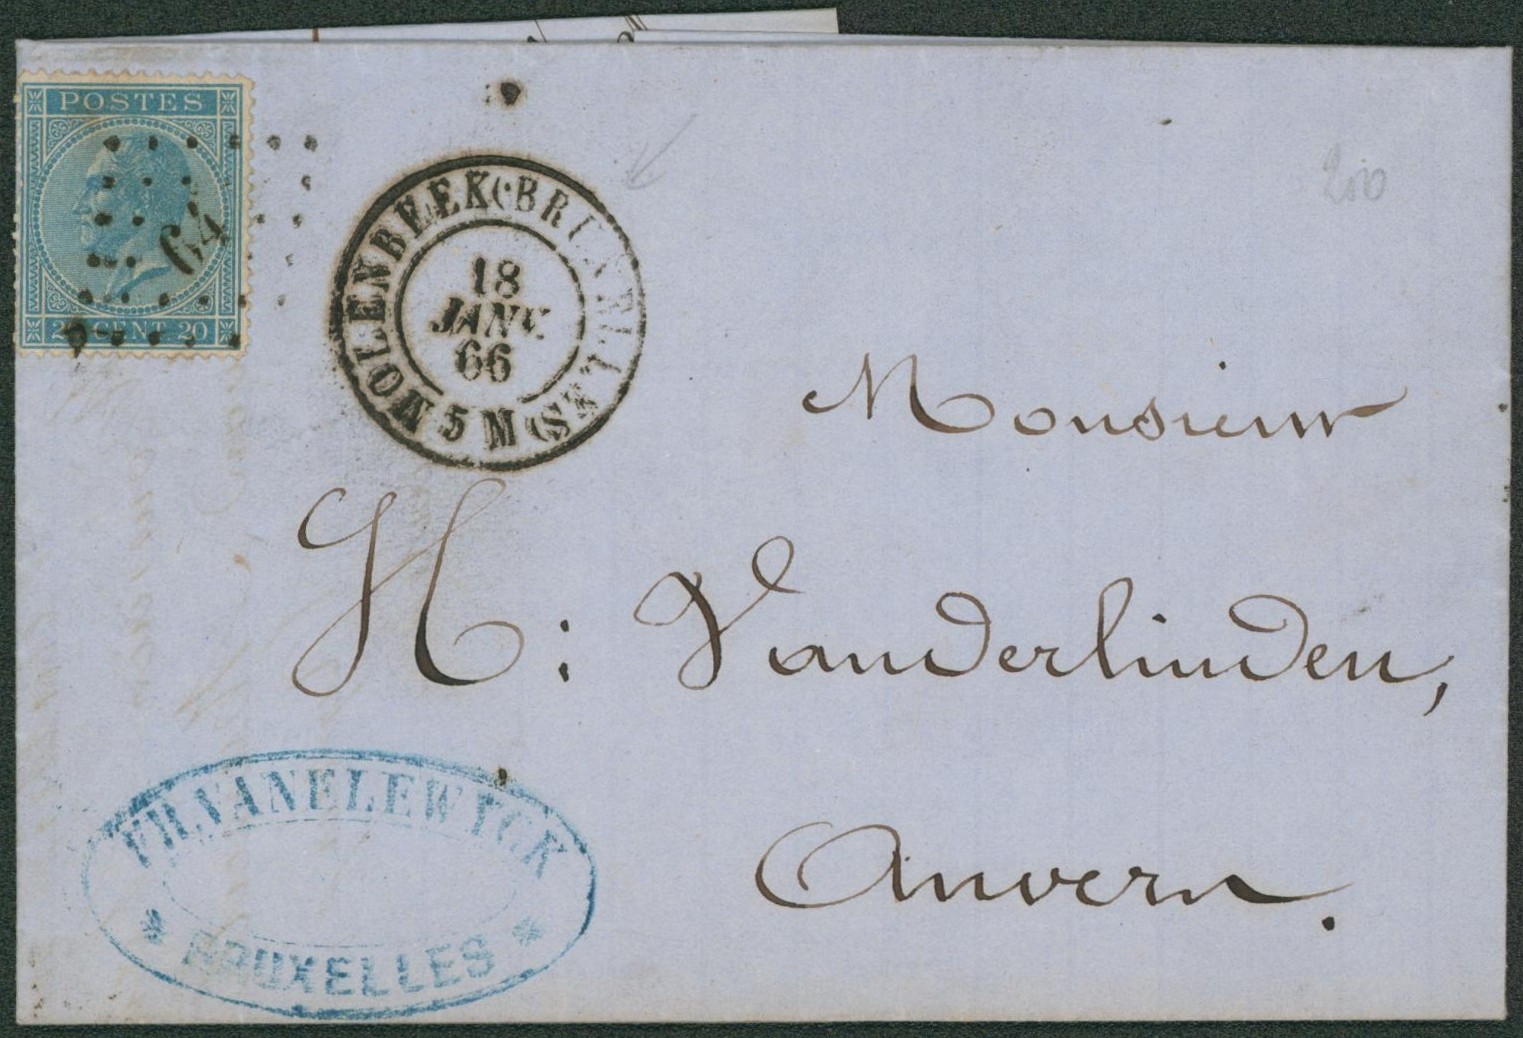 POSTES
64
20 CENT 20
MOLENBEEK (BRUXELLES) 5 M
18
JANV.
66
200
Monsieur
H: Vanderlinden,
Anvers.
FR. VANELEWYCK
* BRUXELLES *